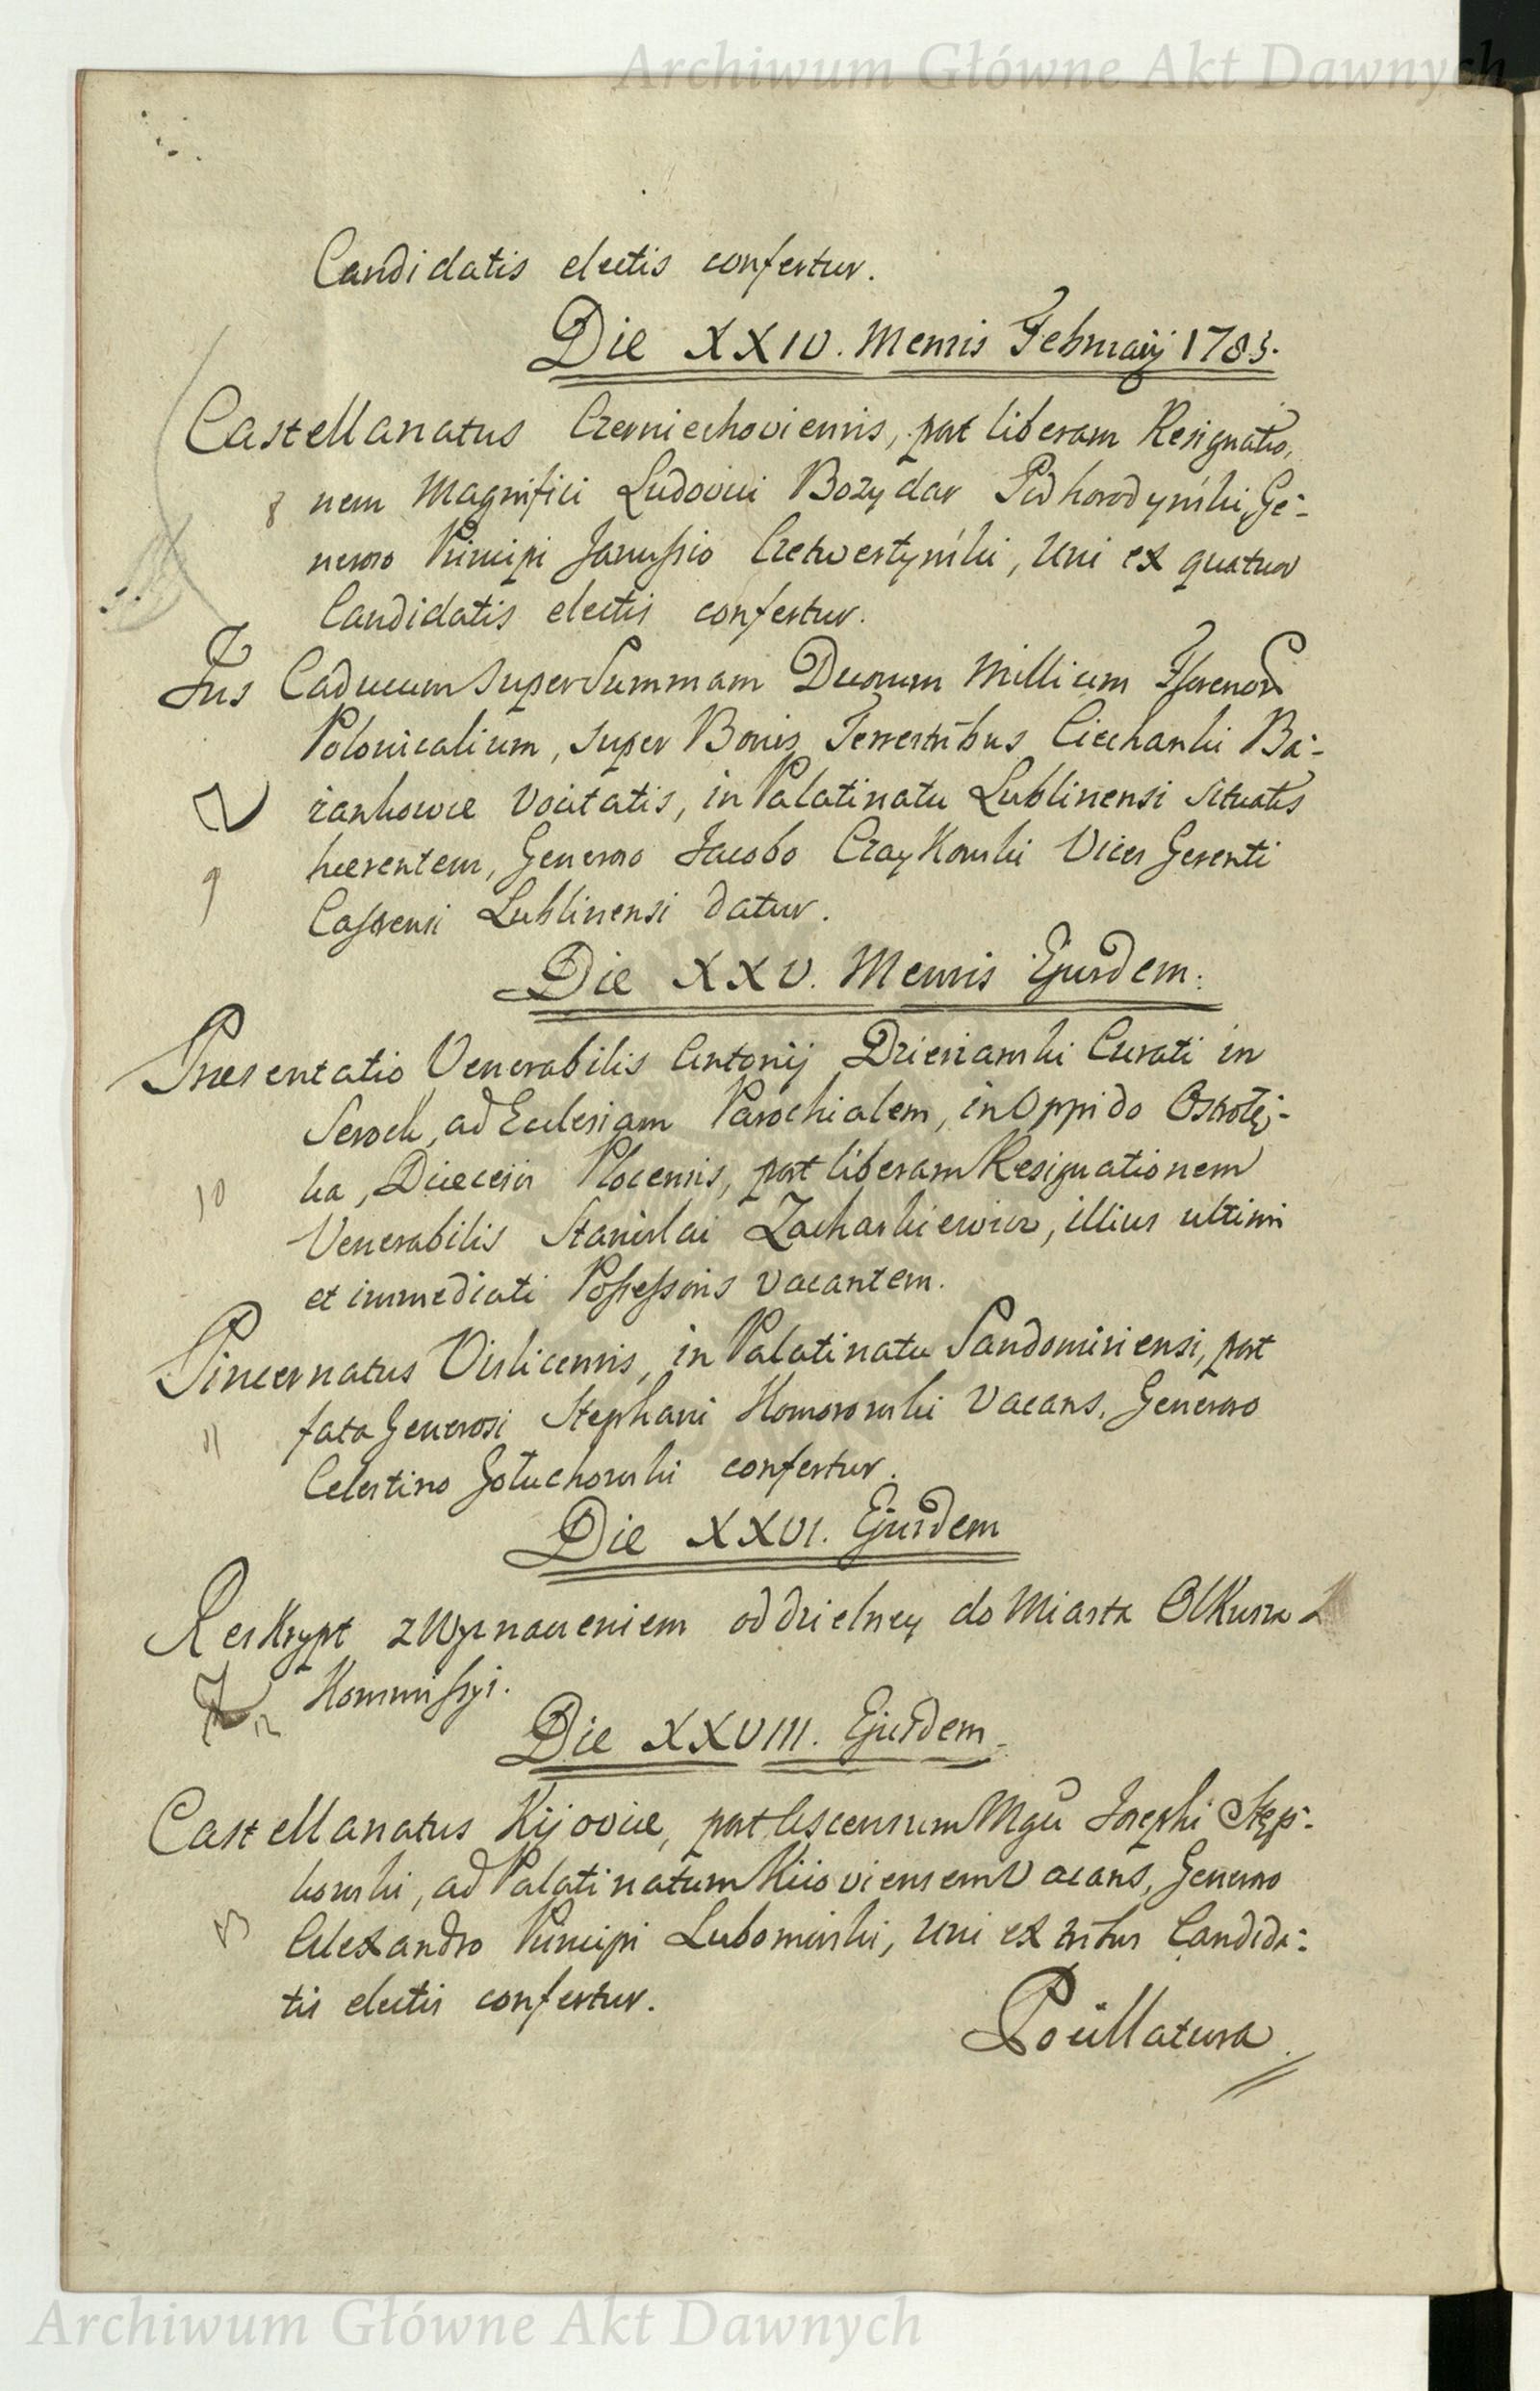 Archiwum Główne Akt Dawnych
Candidatis electis confertur.
Die XXIV. Mensis Februarij 1785.
Castellanatus Czerniechoviensis, post liberam Resignatio,
8 nem Magnifici Ludovici Bozydar Podhorodynski, Ge:
neroso Principi Janussio Czetwertynski, Uni ex quatuor
Candidatis electis confertur.
Jus Caducum super Summam Duorum Millium Florenor
Polonicalium, super Bonis Terrestribus Ciechanki Ba:
rankowce vocitatis, in Palatinatu Lublinensi situatis
9 hærentem, Generoso Jacobo Czaykowski Vices Gerenti
Castrensi Lublinensi datur.
Die XXV. Mensis Ejusdem.
Præsentatio Venerabilis Antonij Dzieriamski Curati in
Serock, ad Ecclesiam Parochialem, in Oppido Ostrołę:
10 ka, Diæcesis Plocensis, post liberam Resignationem
Venerabilis Stanislai Zacharkiewicz, illius ultimi
et immediati Possessoris vacantem.
Pincernatus Vislicensis, in Palatinatu Sandomiriensi, post
11 fata Generosi Stephani Komorowski vacans, Generoso
Celestino Gołuchowski confertur.
Die XXVI. Ejusdem
Reskrypt z Wyznaczeniem oddzielney do Miasta Olkusza
12 Kommissyi.
Die XXVIII. Ejusdem.
Castellanatus Kijoviæ, post Ascensum Mgci Josephi Stęp:
kowski, ad Palatinatum Kiioviensem vacans, Generoso
13 Alexandro Principi Lubomirski, uni ex tribus Candida:
tis electis confertur.
Pocillatura
Archiwum Główne Akt Dawnych